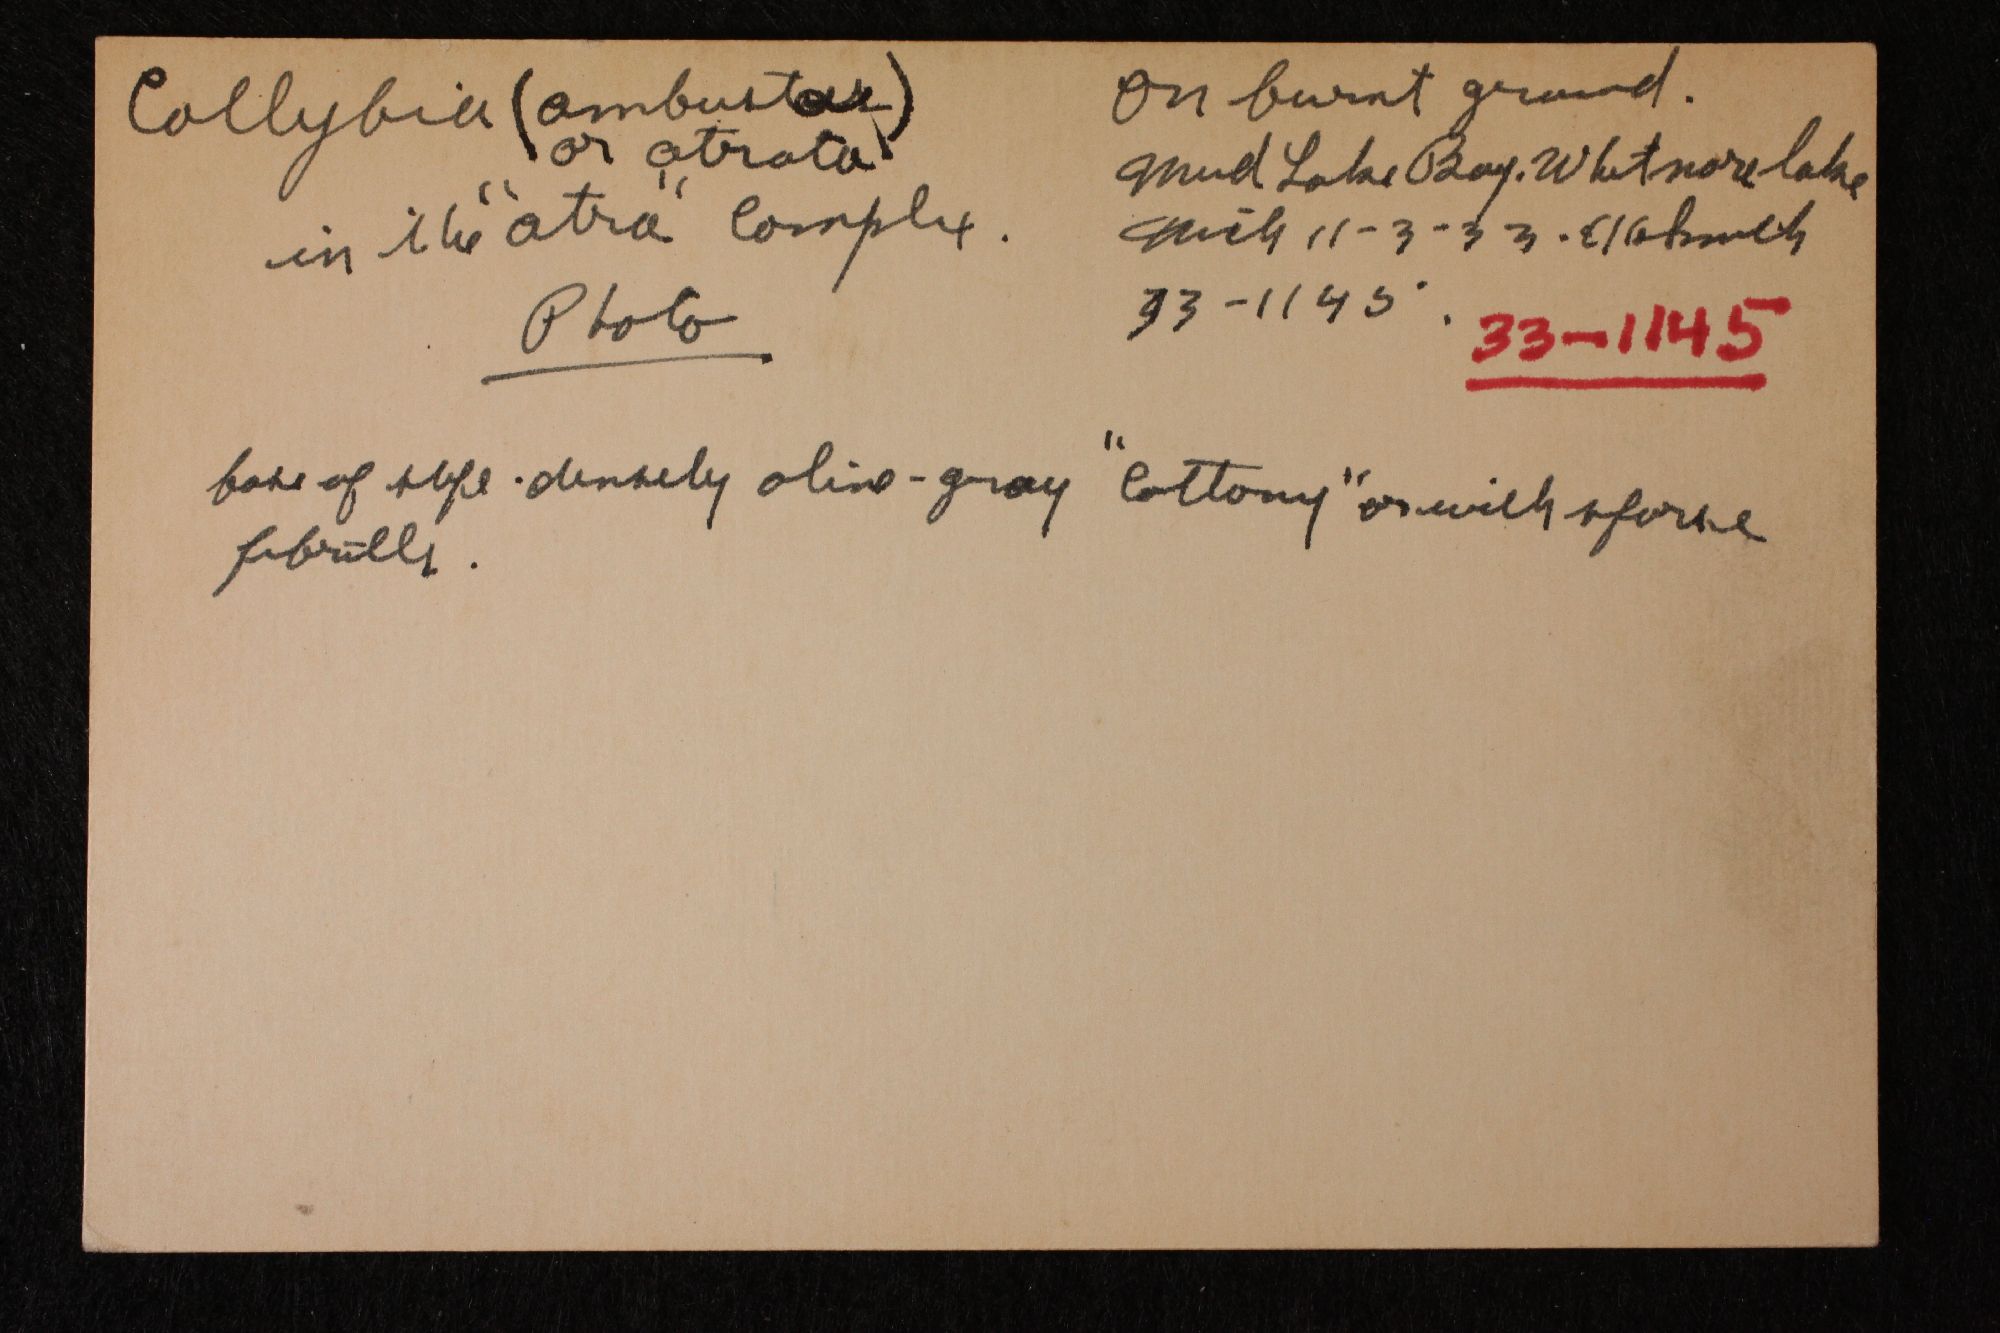 Collybia (ambusta
or atrata)
in the "atra" Complex.
Photo
On burnt ground.
Mud Lake Bog. Whitmore lake
Mich 11-3-33.
33-1145.
33-1145
base of stipe densely olive-gray "Cottony" or with sparse
fibrills.